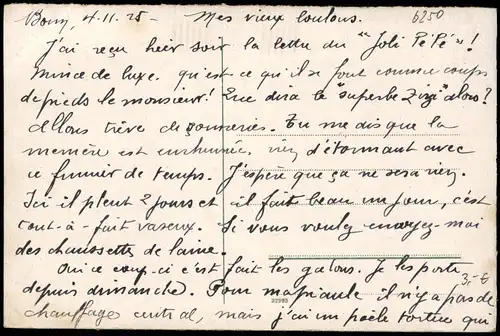 Bonn, 4-11-25 - Mes vieux loulous. 6250
J'ai reçu hier soir la lettre du "Joli Pépé"!
Mince de luxe. qu'est ce qu'il se fout comme coups
de pieds le monsieur! Que dira le "superbe Zizi" alors?
Allons trève de conneries. Tu me dis que la
memère est enrhumée, rien d'étonnant avec
ce fumier de temps. J'espère que ça ne sera rien.
Ici il pleut 2 jours et il fait beau un jour, c'est
tout-à-fait vaseux. Si vous voulez envoyez-moi
des chaussettes de laine.
Oui ce coup-ci c'est fait les galons. Je les porte 3,-6
depuis dimanche. Pour ma piaule il n'y a pas de
32993
chauffage central, mais j'ai un poêle tortue qui